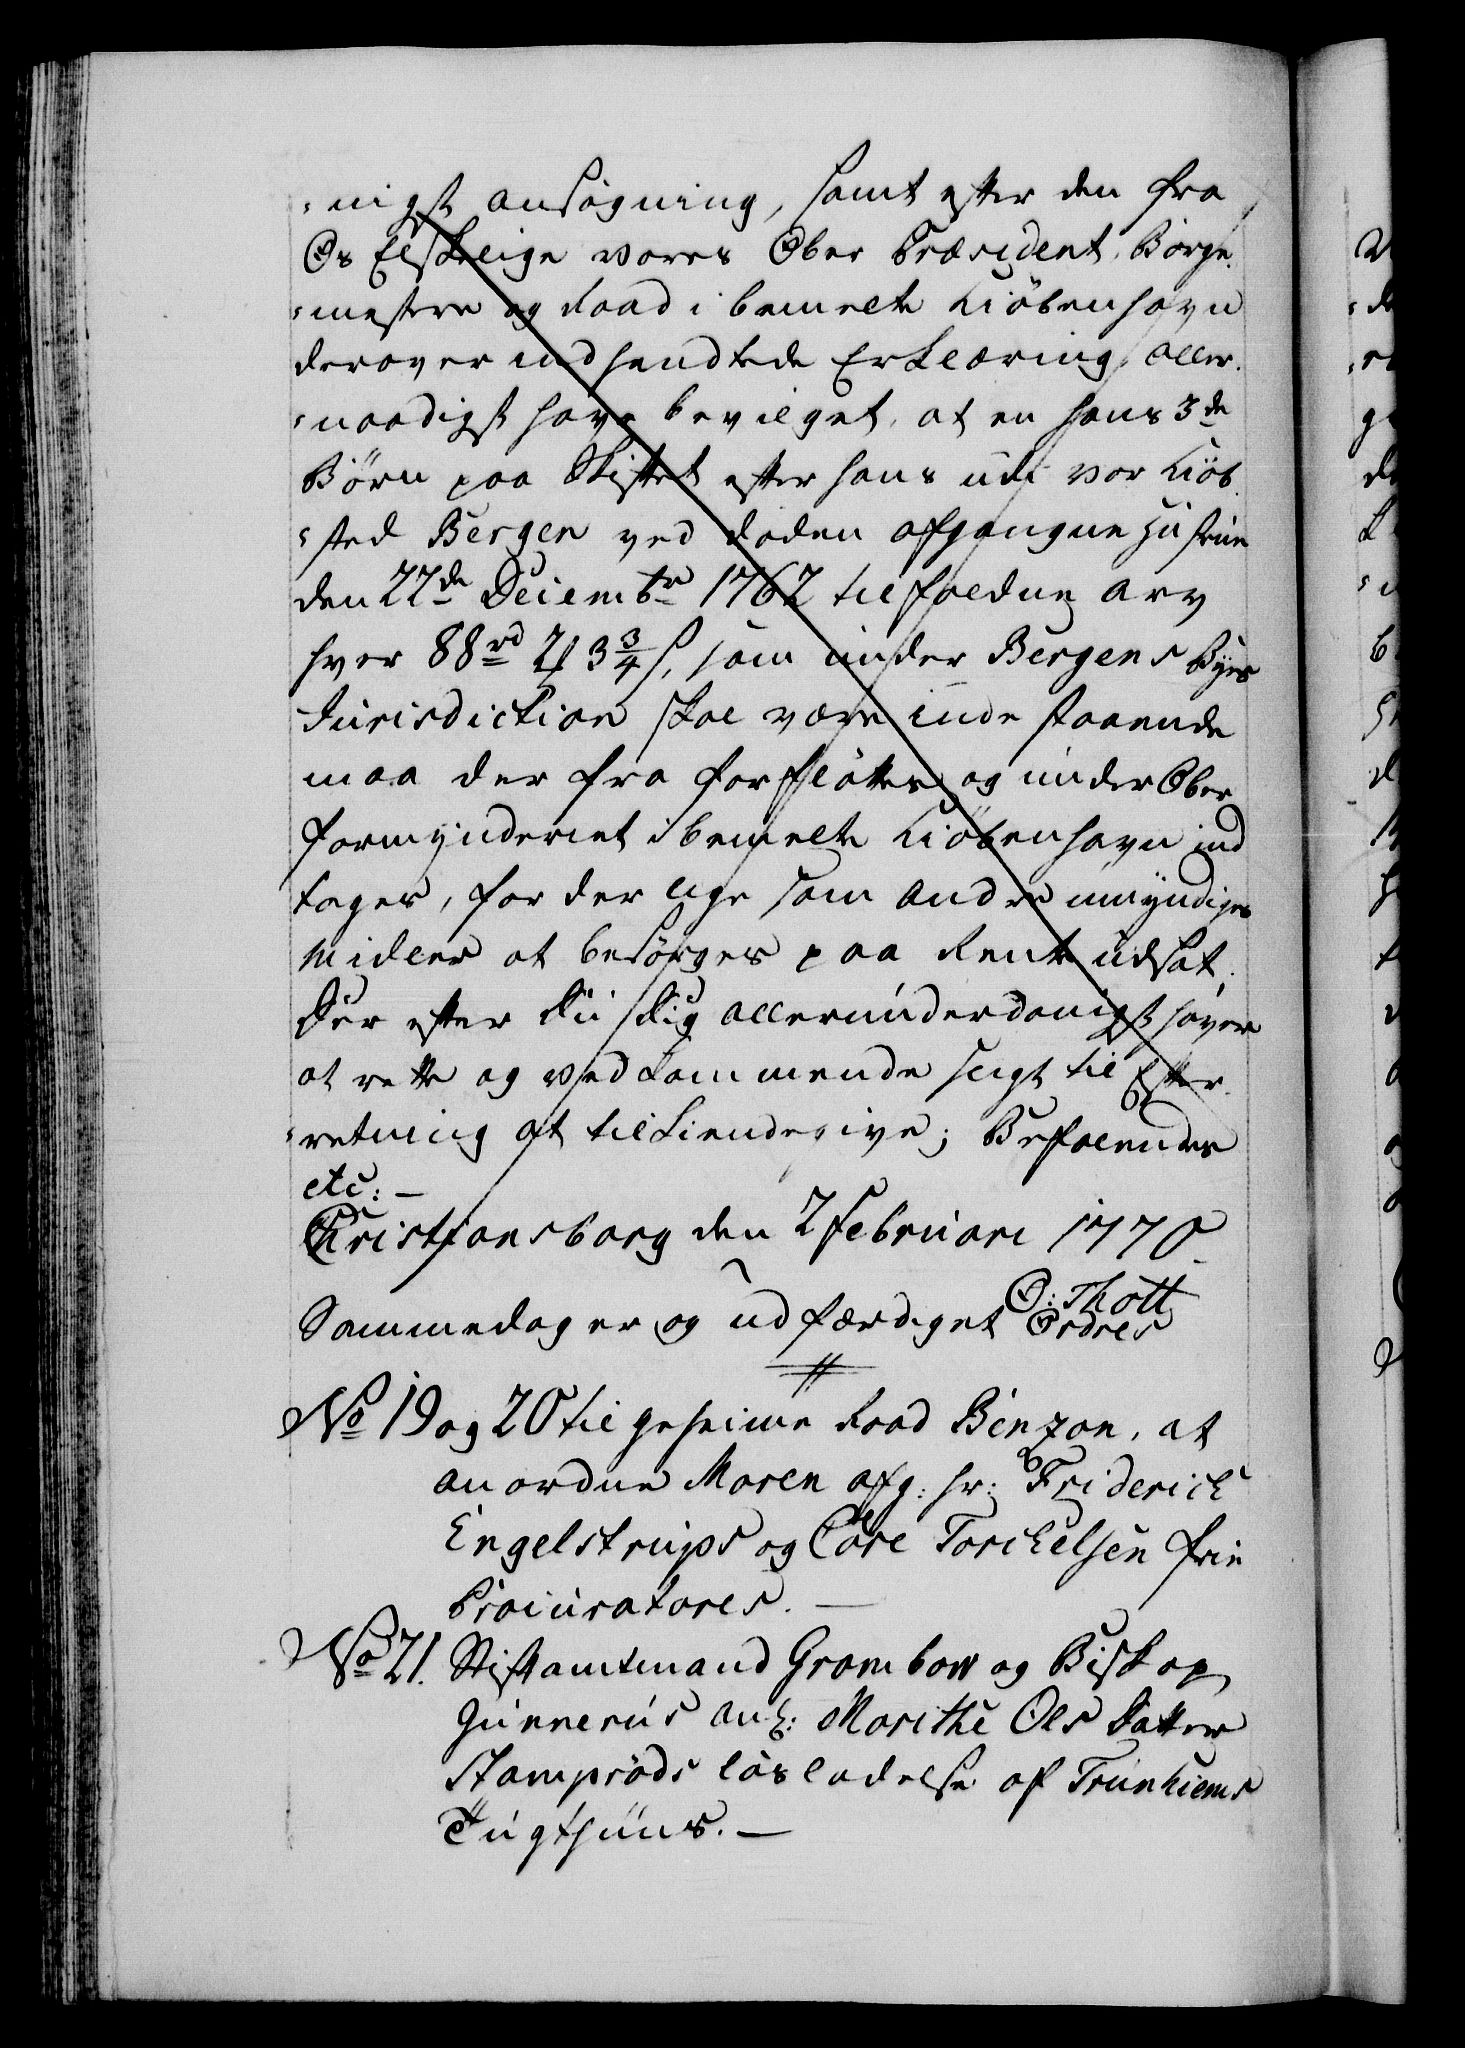 -nigst ansögning, samt efter den fra
Os Elskelige vores Ober Præsident, Borge-
-mestere og Raad i bemelte Kiöbenhavn
derover indhendtede Erklæring, aller-
-naadigst have bevilget, at en hans 3de
Börn paa Skiftet efter hans udi vor Kiöb-
-sted Bergen ved döden afgangne Hustrue
den 22de Decembr 1762 tilfaldne Arv
hver 88rd 2 3 3/4 s, som under Bergens Byes
Jurisdiction skal være inde staaende
maa der fra forflöttes og under Ober
formynderiet i bemelte Kiöbenhavn ind
tages, for der lige som andre umyndiges
Midler at besörges paa Rente udsat,
Der efter Du Dig allerunderdanigst haver
at rette og vedkommende sligt til Efter-
-retning at tilkiendegive; Befalendes
etc: —
Christiansborg den 2 Februari 1770
O: Thott
Sammedag er og udfærdiget Ordres
No 19 og 20 til geheime Raad Benzon, at
anordne Maren afg: hr: Friderich
Engelstrups og Care Torchelsen frie
Procuratores. —
No 21. Stiftamtmand Grambow og Biskop
Gunnerus ang: Marithe Ols Datter
Stampröds lösladelse af Trunhiems
Tugthuus. —